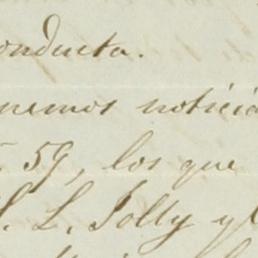 onducta.
nemos notici
59, los que
L. Jolly y